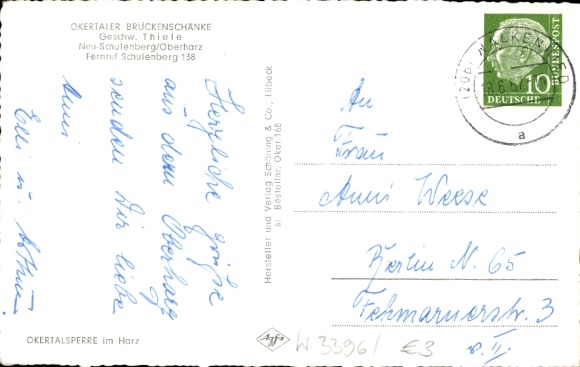 OKERTALER BRÜCKENSCHÄNKE
Geschw. Thiele
Neu-Schulenberg/Oberharz
Fernruf Schulenberg 138
Herzliche Grüße
aus dem Oberharz
senden Dir liebe
Anni
Elli u.
OKERTALSPERRE im Harz
Hersteller und Verlag Schöning & Co., Lübeck
Bestellnr. Oker 168
Agfa
DEUTSCHE
BUNDESPOST
10
(20b) WALKENRIED
a
An
Frau
Anni Weese
Berlin N. 65
Fehmarnerstr. 3
v. II.
W 3396/
€3